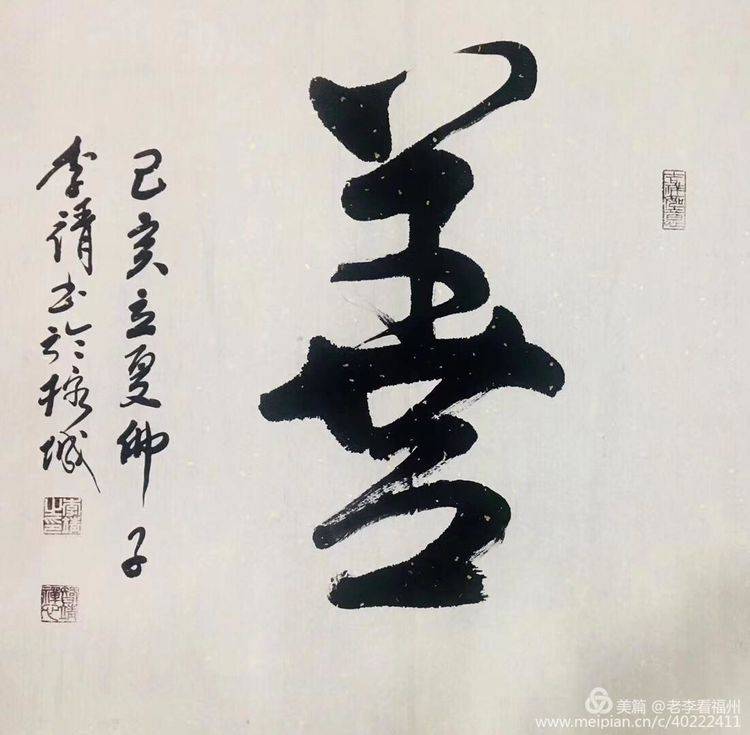 善
己亥立夏佛子
李靖书於榕城
吉祥如意
美篇 @老李看福州
www.meipian.cn/c/40222411